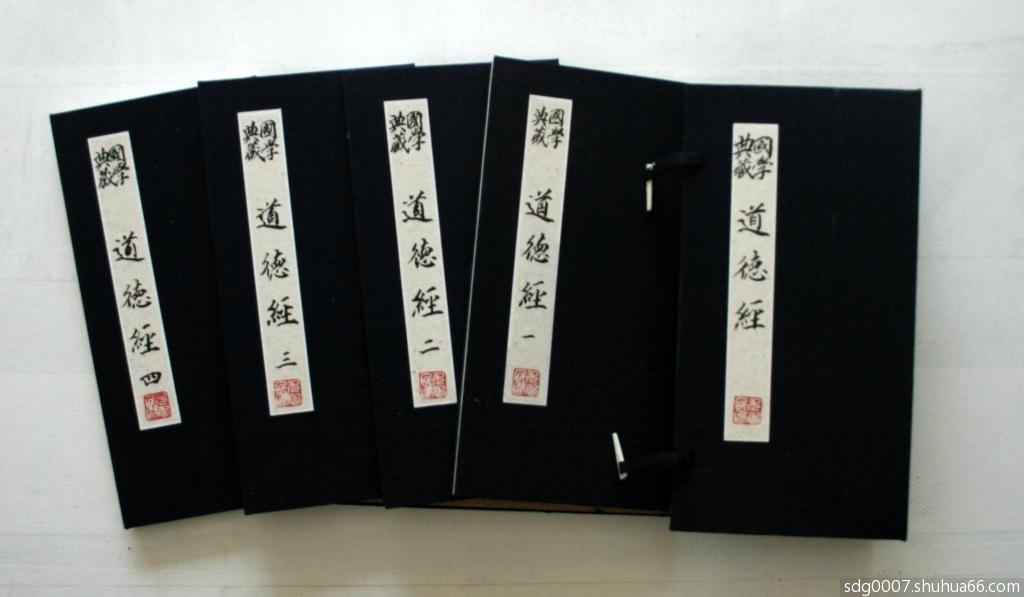 國学典藏
道德經
四
國学典藏
道德經
三
國学典藏
道德經
二
國学典藏
道德經
一
國学典藏
道德經
sdg0007.shuhua66.com